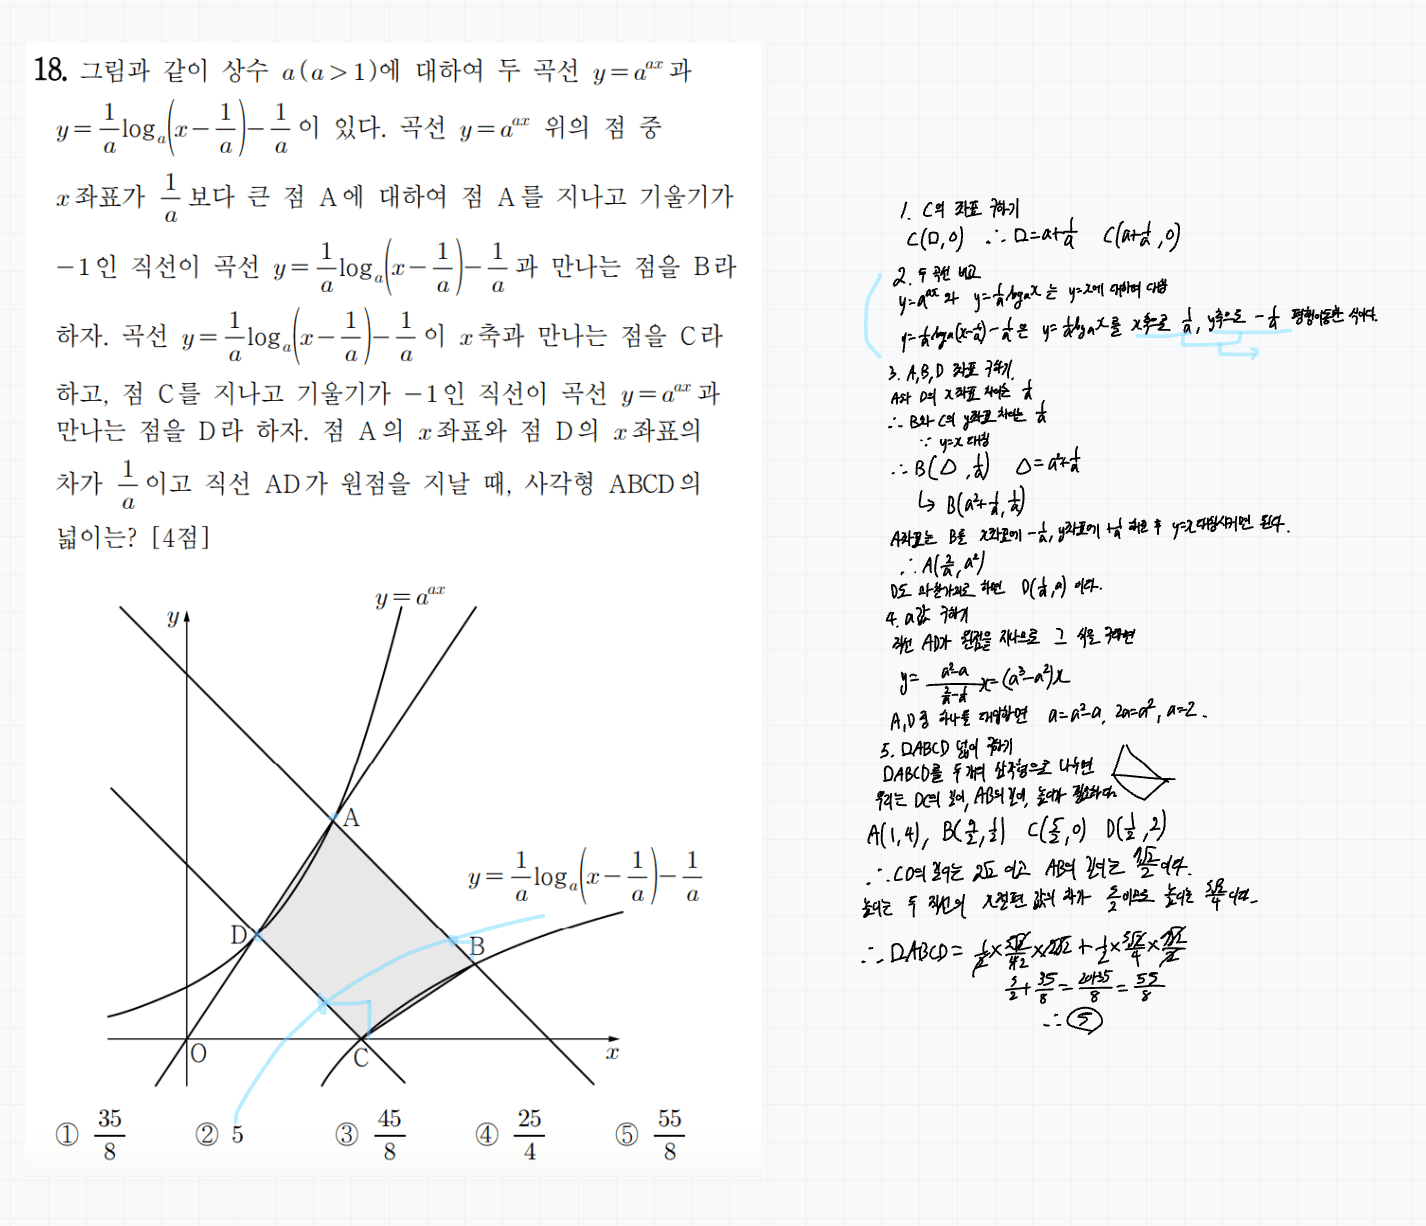 18. 그림과 같이 상수 a(a>1)에 대하여 두 곡선 y=a^{ax}과
y=\frac{1}{a}log_a(x-\frac{1}{a})-\frac{1}{a}이 있다. 곡선 y=a^{ax} 위의 점 중
x좌표가 \frac{1}{a}보다 큰 점 A에 대하여 점 A를 지나고 기울기가
-1인 직선이 곡선 y=\frac{1}{a}log_a(x-\frac{1}{a})-\frac{1}{a}과 만나는 점을 B라
하자. 곡선 y=\frac{1}{a}log_a(x-\frac{1}{a})-\frac{1}{a}이 x축과 만나는 점을 C라
하고, 점 C를 지나고 기울기가 -1인 직선이 곡선 y=a^{ax}과
만나는 점을 D라 하자. 점 A의 x좌표와 점 D의 x좌표의
차가 \frac{1}{a}이고 직선 AD가 원점을 지날 때, 사각형 ABCD의
넓이는? [4점]
y=a^{ax}
y
A
y=\frac{1}{a}log_a(x-\frac{1}{a})-\frac{1}{a}
D
B
O
C
x
① \frac{35}{8} ② 5 ③ \frac{45}{8} ④ \frac{25}{4} ⑤ \frac{55}{8}
1. C의 좌표 구하기
C(□,0) ∴ □=a+\frac{1}{a} C(a+\frac{1}{a},0)
2. 두 곡선 비교
y=a^{ax}와 y=\frac{1}{a}log_a x는 y=x에 대하여 대칭
y=\frac{1}{a}log_a(x-\frac{1}{a})-\frac{1}{a}은 y=\frac{1}{a}log_a x를 x축으로 \frac{1}{a}, y축으로 -\frac{1}{a} 평행이동한 식이다.
3. A,B,D 좌표 구하기.
A와 D의 x좌표 차이는 \frac{1}{a}
∴ B와 C의 y좌표 차이는 \frac{1}{a}
∵ y=x 대칭
∴ B(△,\frac{1}{a}) △=a²+\frac{1}{a}
↳ B(a²+\frac{1}{a},\frac{1}{a})
A좌표는 B를 x좌표에 -\frac{1}{a}, y좌표에 +\frac{1}{a} 해준 후 y=x대칭시키면 된다.
∴ A(\frac{2}{a},a²)
D도 마찬가지로 하면 D(\frac{1}{a},a) 이다.
4. a값 구하기
직선 AD가 원점을 지나므로 그 식을 구하면
y=\frac{a²-a}{\frac{2}{a}-\frac{1}{a}}x=(a³-a²)x
A,D중 하나를 대입하면 a=a²-a, 2a=a², a=2.
5. □ABCD 넓이 구하기
□ABCD를 두 개의 삼각형으로 나누면
우리는 DC의 길이, AB의 길이, 높이가 필요하다.
A(1,4), B(\frac{9}{2},\frac{1}{2}) C(\frac{5}{2},0) D(\frac{1}{2},2)
∴ CD의 길이는 2√2 이고 AB의 길이는 \frac{7√2}{2}이다.
높이는 두 직선의 x절편 값의 차가 \frac{5}{2}이므로 높이는 \frac{5√2}{4}이다.
∴ □ABCD = \frac{1}{2}×\frac{5√2}{4}×2√2+\frac{1}{2}×\frac{5√2}{4}×\frac{7√2}{2}
\frac{5}{2}+\frac{35}{8}=\frac{20+35}{8}=\frac{55}{8}
∴ ⑤